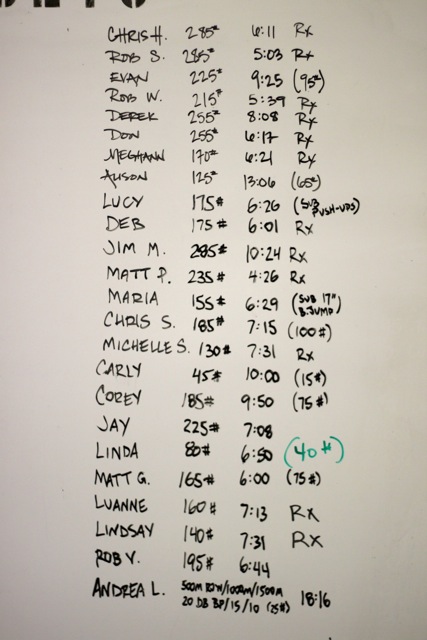 CHRIS H. 285# 6:11 Rx
ROB S. 285# 5:03 Rx
EVAN 225# 9:25 (95#)
ROB W. 215# 5:39 Rx
DEREK 255# 8:08 Rx
DON 255# 6:17 Rx
MEGHANN 170# 6:21 Rx
ALISON 125# 13:06 (65#)
LUCY 175# 6:26 (SUB PUSH-UPS)
DEB 175# 6:01 Rx
JIM M. 285# 10:24 Rx
MATT P. 235# 4:26 Rx
MARIA 155# 6:29 (SUB 17" B.JUMP)
CHRIS S. 185# 7:15 (100#)
MICHELLE S. 130# 7:31 Rx
CARLY 45# 10:00 (15#)
COREY 185# 9:50 (75#)
JAY 225# 7:08
LINDA 80# 6:50 (40#)
MATT G. 165# 6:00 (75#)
LUANNE 160# 7:13 Rx
LINDSAY 140# 7:31 Rx
ROB V. 195# 6:44
ANDREA L. 500M ROW/1000M/1500M
20 DB BP/15/10 (25#) 18:16